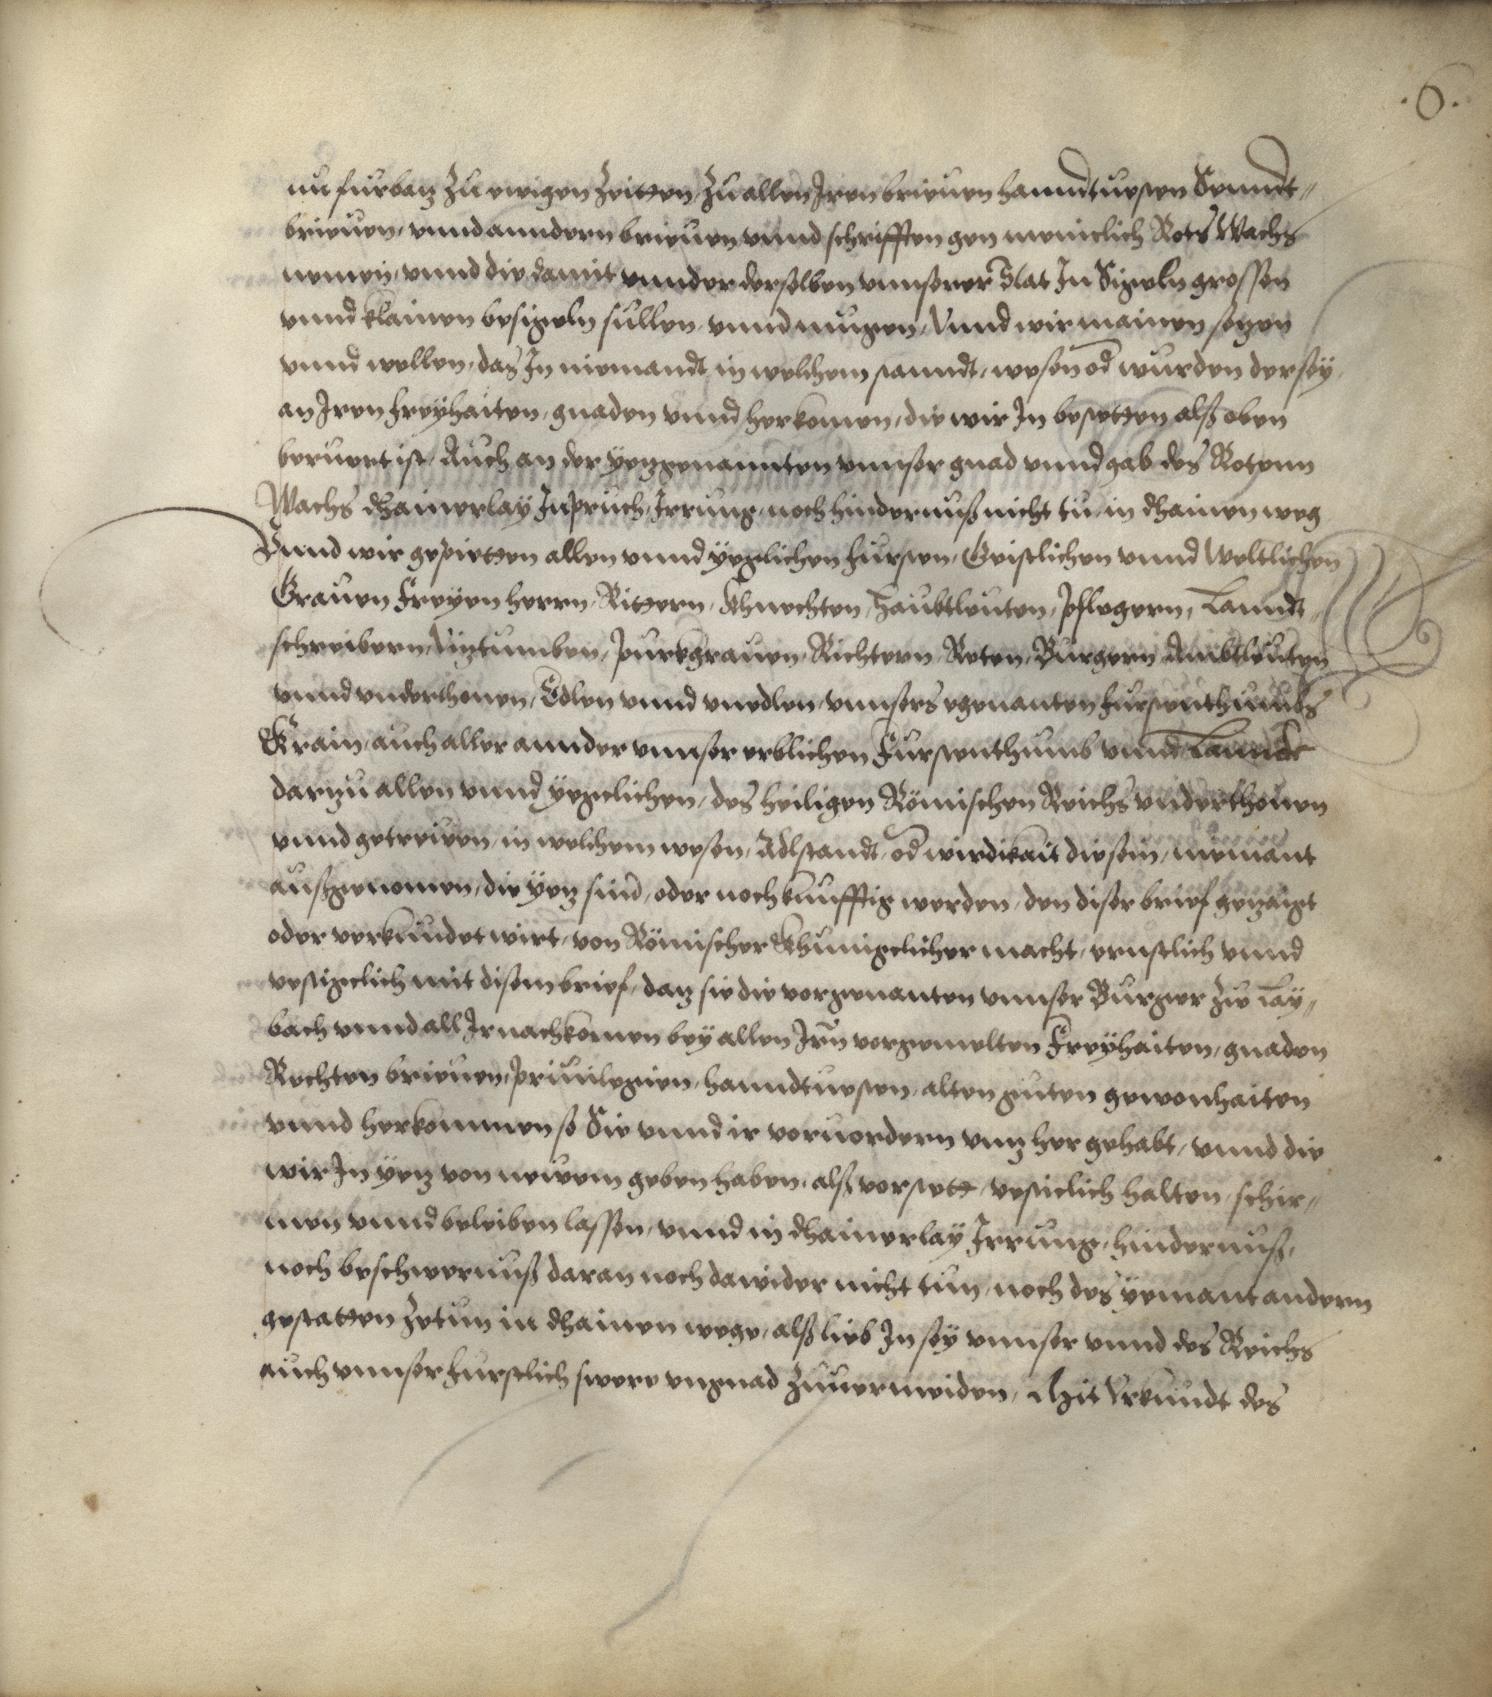 .6.
nu furbaz zu ewigen zeitten, zu allen Iren brieuen hanndtuesten Senndt=
brieuen, vnnd anndern brieuen vnnd schrifften gen meniclich Rots Wachs
nemen, vnnd die damit vnnder derselben vnnserer Stat In Sigeln grossen
vnnd klainen besigeln sullen vnnd mugen, Vnnd wir mainen setzen
vnnd wellen, das In niemandt, in welchem stanndt, wesen od wurden der sey,
an Iren freyhaiten, gnaden vnnd herkomen, die wir In bestetten alß oben
beruert ist, Auch an der yezgenannten vnnser gnad vnnd gab des Rotenn
Wachs dhainerlay Inpruch, Irrung, noch hindernuß nicht tu, in dhainen weg
Vnnd wir gepietten allen vnnd yeglichen fursten, Geistlichen vnnd weltlichen
Grauen Freyen herrn, Rittern, Khnechten, Haubtleuten, Pflegern, Lanndt=
schreibern, Viztumben, Purkhgrauen, Richtern, Reten, Burgern Ambtleuten
vnnd vnderthonen, Edlen vnnd vnedlen, vnnsers egenanten furstenthumbs
Krain, auch aller annder vnnser erblichen Furstenthumb vnnd Lanndt
darzu allen vnnd yegclichen, des heiligen Römischen Reichs vnderthonen
vnnd getreuen, in welchem wesen, Adlstandt, od wirdikait die sein, niemant
außgenomen, die yez sind, oder noch kunfftig werden, den diser brief gezaigt
oder verkundet wirt, von Römischer Khunigclicher macht, ernstlich vnnd
vestigclich mit disem brief, daz sie die vorgenanten vnnser Burger zu Lay=
bach vnnd all Ir nachkomen bey allen Irn vorgemelten Freyhaiten, gnaden
Rechten brieuen, Priuilegien, hanndtuesten, alten guten gewonhaiten
vnnd herkommen so Sie vnnd ir voruordern vnnz her gehabt, vnnd die
wir In yez von neuem geben haben, alß vorstett, vesticlich halten, schir=
men vnnd beleiben lassen, vnnd in dhainerlay Irrung, hindernuß,
noch beschwernuß daran noch dawider nicht tun, noch des yemant andern
gestatten zetun in dhainen wege, alß lieb In sey vnnser vnnd des Reichs
auch vnnser furstlich swere vngnad zuuermeiden, Mit Vrkundt des